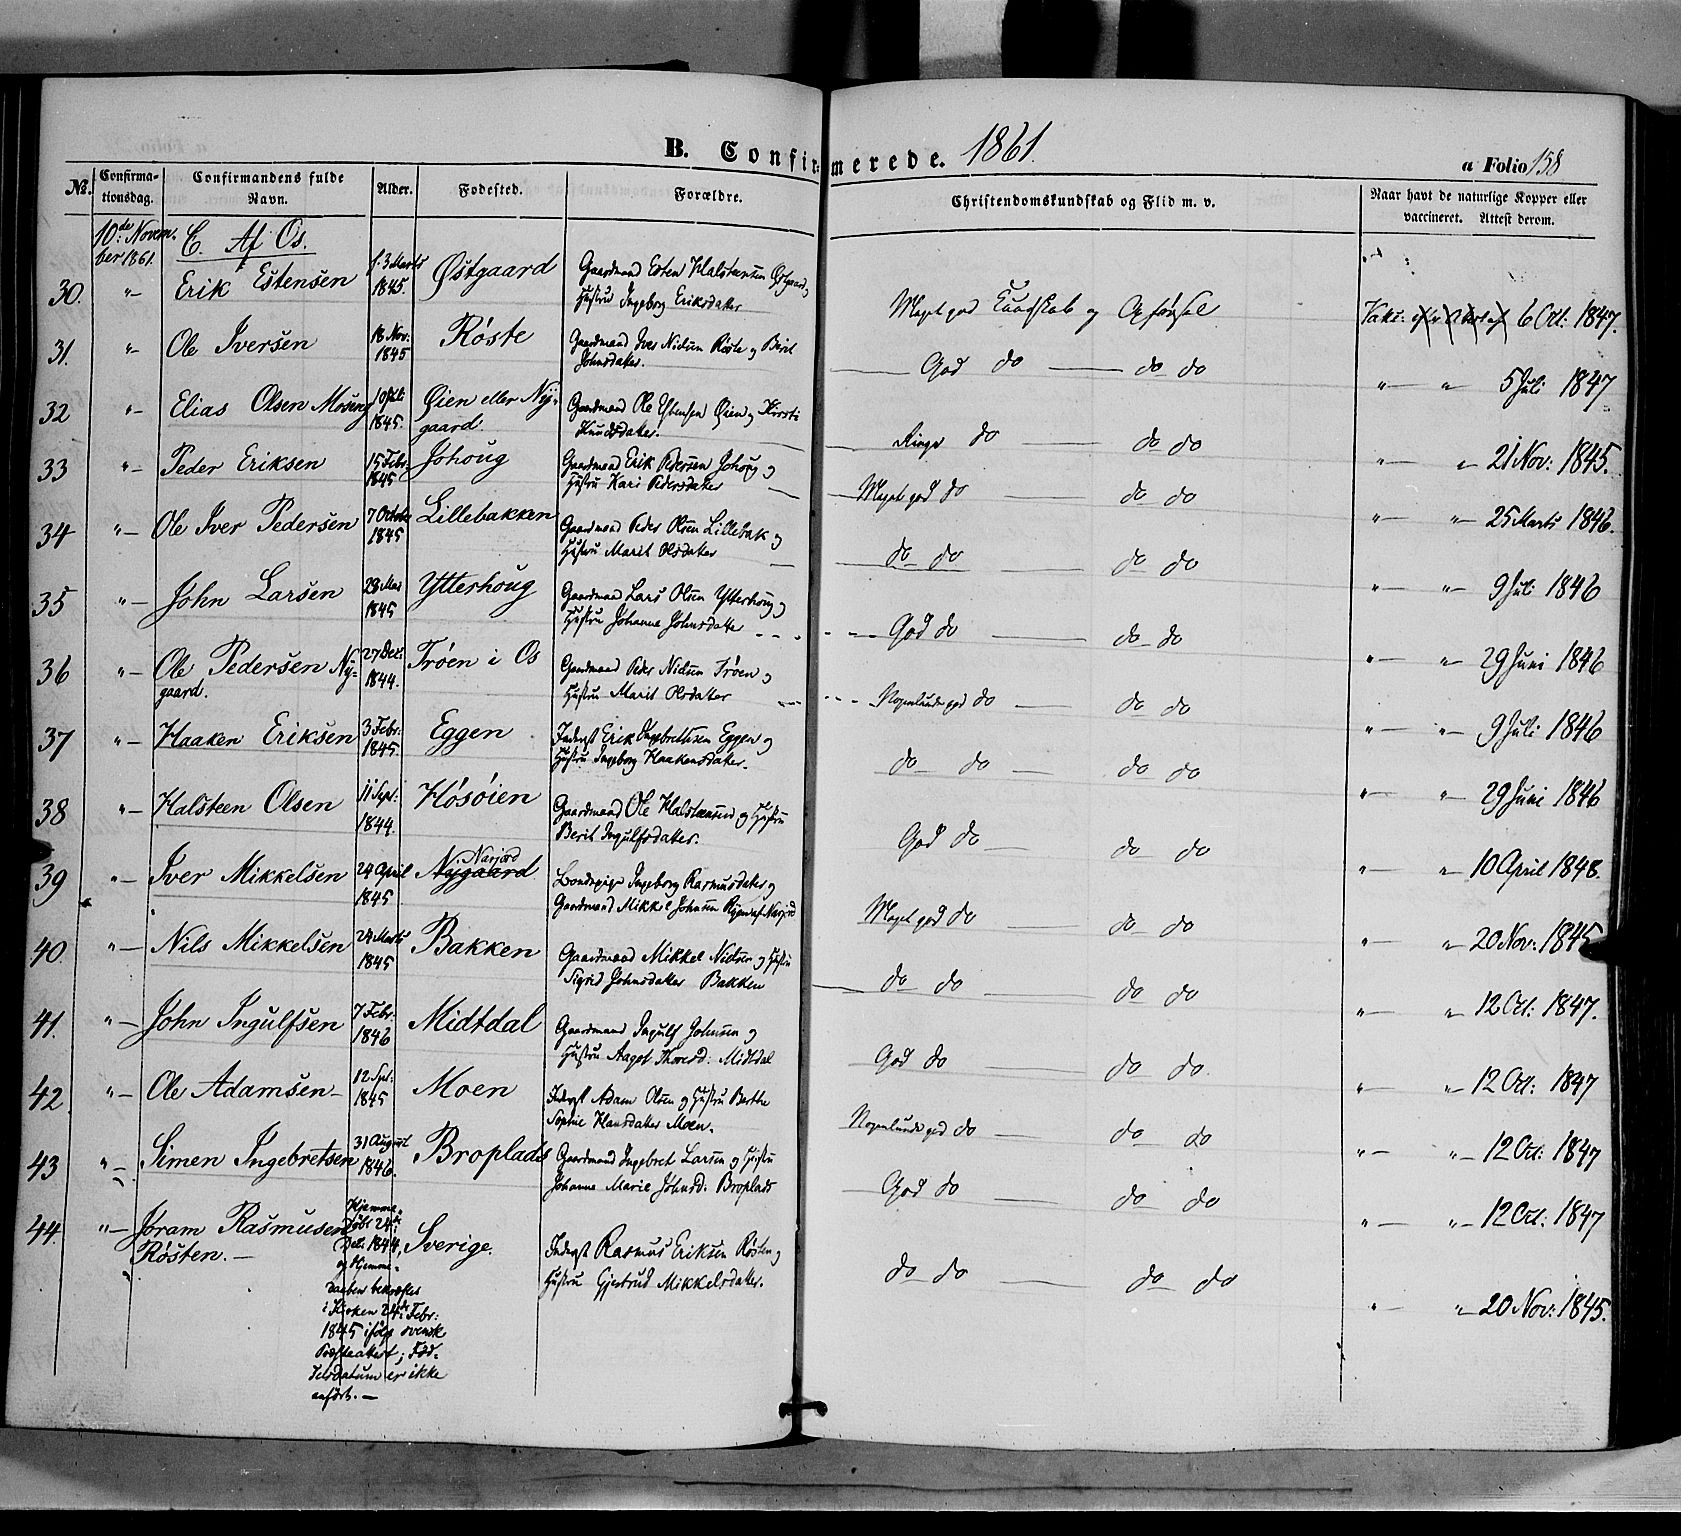 B. Confirmerede. 1861.
a Folio 158
No. Confirmationsdag. Confirmandens fulde Navn. Alder. Fødested. Forældre. Christendomskundskab og Flid m. v. Naar havt de naturlige Kopper eller vaccineret. Attest derom.
10de Novem-
ber 1861.
C. Af Os.
30. "- Erik Estensen f. 3 Marts 1845. Østgaard Gaardmand Esten Halstensen Østgaard og
Hustru Ingeborg Eriksdatter Meget god Kundskab og Opførsel Vakc: 6 Oct: 1847.
31. "- Ole Iversen 18 Nov: 1845 Røste Gaardmand Iver Nielsen Røste og Berit
Johnsdatter. God do do do "- " 5 Juli 1847
32 "- Elias Olsen Moseng 1845. Øien eller Ny-
gaard. Gaardmand Ole Estensen Øien og Kirsti
Knudsdatter. Ringe do do do "- " 21 Nov: 1845.
33 "- Peder Eriksen 15 Febr: 1845 Johoug Gaardmand Erik Pedersen Johoug og
Hustru Kari Pedersdatter Meget god do do do "- " 25 Marts 1846.
34 "- Ole Iver Pedersen 7 Octobr 1845 Lillebakken Gaardmand Peder Olsen Lillebak og
Hustru Marit Olsdatter do do do do "- " 9 Juli 1846
35 "- John Larsen 28 Mai 1845 Ytterhoug Gaardmand Lars Olsen Ytterhoug og
Hustru Johanne Johnsdatter God do do do "- " 29 Juni 1846
36 "- Ole Pedersen Ny-
gaard. 27 Dec: 1844. Trøen i Os Gaardmand Peder Nielsen Trøen og
Hustru Marit Olsdatter Nogenlunde god do do do "- " 9 Juli 1846
37 "- Haaken Eriksen 3 Febr: 1845. Eggen Inderst Erik Ingebretsen Eggen og
Hustru Ingeborg Haakensdatter. do do do do "- " 29 Juni 1846
38 "- Halsteen Olsen 11 Sept: 1844. Høsøien Gaardmand Ole Halstensen og Hustru
Berit Ingulfsdatter. God do do do "- " 10 April 1848.
39 "- Iver Mikkelsen 24 April 1845 Narjord
Nygaard Bondepige Ingeborg Rasmusdatter og
Gaardmand Mikkel Johnsen Ryen af Narjord Meget god do do do "- " 20 Nov: 1845
40 "- Nils Mikkelsen 24 Marts 1845 Bakken Gaardmand Mikkel Nielsen og Hustru
Sigrid Johnsdatter Bakken do do do do "- " 12 Oct: 1847.
41. "- John Ingulfsen 7 Febr: 1846 Midtdal Gaardmand Ingulf Johnsen og
Hustru Aagot Thoresd: Midtdal God do do do. "- " 12 Oct: 1847
42 "- Ole Adamsen 12 Spt: 1845 Moen Inderst Adam Olsen og Hustru Berthe
Sophie Hansdatter Moen. Nogenlunde god do do do "- " 12 Oct: 1847
43 "- Simen Ingebretsen 31 August 1846. Broplads Gaardmand Ingebret Larsen og Hustru
Johanne Marie Johnsd: Broplads God do do do "- " 12 Oct: 1847
44. "- Joram Rasmusen
Røsten. Hjemme-
døbt 24de
Dec: 1844,
og Hjemme-
daaben bekræftes
i Kirken 24de Febr:
1845 ifølge svensk
Præsteattest; Fød-
selsdatum er ikke
anført. Sverige. Inderst Rasmus Eriksen Røsten og
Hustru Gjertrud Mikkelsdatter. do do do do "- " 20 Nov: 1845.